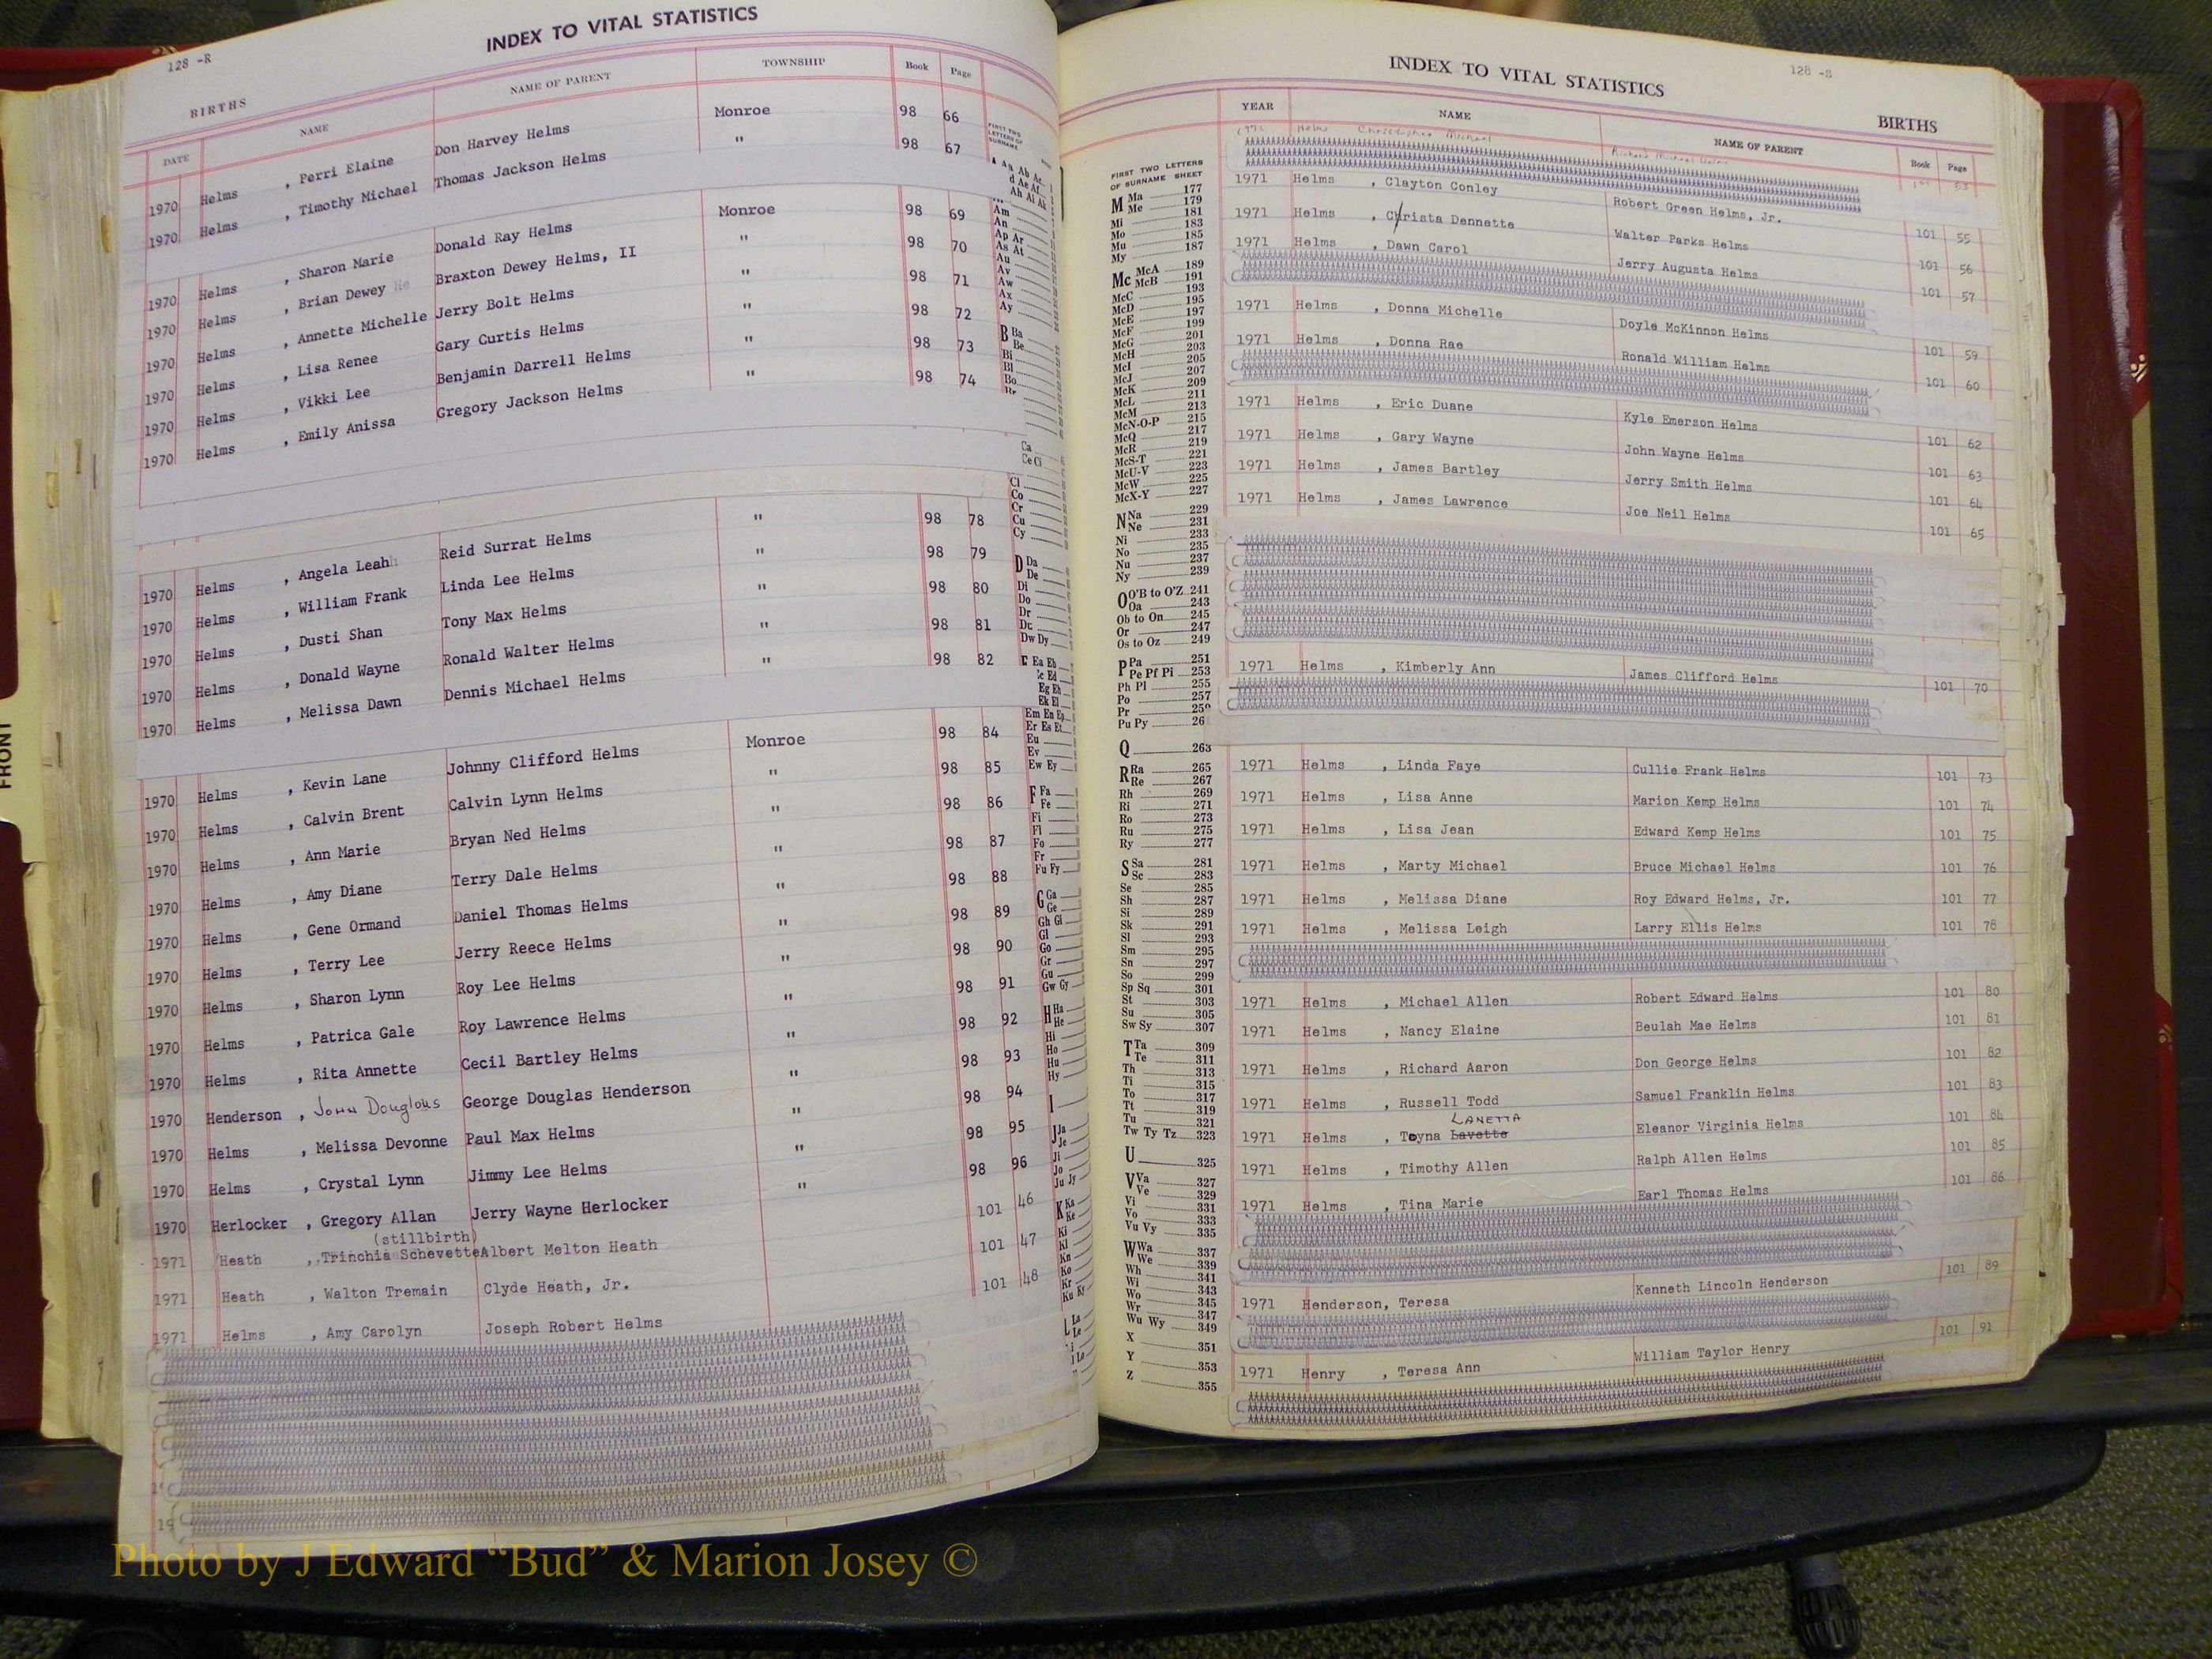 128 -R
INDEX TO VITAL STATISTICS
BIRTHS
DATE NAME NAME OF PARENT TOWNSHIP Book Page
1970 Helms , Perri Elaine Don Harvey Helms Monroe 98 66
1970 Helms , Timothy Michael Thomas Jackson Helms " 98 67
1970 Helms , Sharon Marie Donald Ray Helms Monroe 98 69
1970 Helms , Brian Dewey Braxton Dewey Helms, II " 98 70
1970 Helms , Annette Michelle Jerry Bolt Helms " 98 71
1970 Helms , Lisa Renee Gary Curtis Helms " 98 72
1970 Helms , Vikki Lee Benjamin Darrell Helms " 98 73
1970 Helms , Emily Anissa Gregory Jackson Helms " 98 74
1970 Helms , Angela Leah Reid Surrat Helms " 98 78
1970 Helms , William Frank Linda Lee Helms " 98 79
1970 Helms , Dusti Shan Tony Max Helms " 98 80
1970 Helms , Donald Wayne Ronald Walter Helms " 98 81
1970 Helms , Melissa Dawn Dennis Michael Helms " 98 82
1970 Helms , Kevin Lane Johnny Clifford Helms Monroe 98 84
1970 Helms , Calvin Brent Calvin Lynn Helms " 98 85
1970 Helms , Ann Marie Bryan Ned Helms " 98 86
1970 Helms , Amy Diane Terry Dale Helms " 98 87
1970 Helms , Gene Ormand Daniel Thomas Helms " 98 88
1970 Helms , Terry Lee Jerry Reece Helms " 98 89
1970 Helms , Sharon Lynn Roy Lee Helms " 98 90
1970 Helms , Patrica Gale Roy Lawrence Helms " 98 91
1970 Helms , Rita Annette Cecil Bartley Helms " 98 92
1970 Henderson , John Douglas George Douglas Henderson " 98 93
1970 Helms , Melissa Devonne Paul Max Helms " 98 94
1970 Helms , Crystal Lynn Jimmy Lee Helms " 98 95
1970 Herlocker , Gregory Allan Jerry Wayne Herlocker " 98 96
(stillbirth)
1971 Heath , Trinchia Schevette Albert Melton Heath 101 46
1971 Heath , Walton Tremain Clyde Heath, Jr. 101 47
1971 Helms , Amy Carolyn Joseph Robert Helms 101 48
FRONT
INDEX TO VITAL STATISTICS
128 -S
BIRTHS
YEAR NAME NAME OF PARENT Book Page
1971 Helms Christopher Michael Richard Michael Helms
1971 Helms , Clayton Conley Robert Green Helms, Jr. 101 55
1971 Helms , Christa Dennette Walter Parks Helms 101 56
1971 Helms , Dawn Carol Jerry Augusta Helms 101 57
1971 Helms , Donna Michelle Doyle McKinnon Helms 101 59
1971 Helms , Donna Rae Ronald William Helms 101 60
1971 Helms , Eric Duane Kyle Emerson Helms 101 62
1971 Helms , Gary Wayne John Wayne Helms 101 63
1971 Helms , James Bartley Jerry Smith Helms 101 64
1971 Helms , James Lawrence Joe Neil Helms 101 65
1971 Helms , Kimberly Ann James Clifford Helms 101 70
1971 Helms , Linda Faye Cullie Frank Helms 101 73
1971 Helms , Lisa Anne Marion Kemp Helms 101 74
1971 Helms , Lisa Jean Edward Kemp Helms 101 75
1971 Helms , Marty Michael Bruce Michael Helms 101 76
1971 Helms , Melissa Diane Roy Edward Helms, Jr. 101 77
1971 Helms , Melissa Leigh Larry Ellis Helms 101 78
1971 Helms , Michael Allen Robert Edward Helms 101 80
1971 Helms , Nancy Elaine Beulah Mae Helms 101 81
1971 Helms , Richard Aaron Don George Helms 101 82
1971 Helms , Russell Todd Samuel Franklin Helms 101 83
Lanetta
1971 Helms , Toyna Lavette Eleanor Virginia Helms 101 84
1971 Helms , Timothy Allen Ralph Allen Helms 101 85
1971 Helms , Tina Marie Earl Thomas Helms 101 86
1971 Henderson, Teresa Kenneth Lincoln Henderson 101 89
1971 Henry , Teresa Ann William Taylor Henry 101 91
FIRST TWO LETTERS
OF SURNAME SHEET
M Ma 177
Me 179
Mi 181
Mo 183
Mu 185
My 187
Mc McA 189
McB 191
McC 193
McD 195
McE 197
McF 199
McG 201
McH 203
McI 205
McJ 207
McK 209
McL 211
McM 213
McN-O-P 215
McQ 217
McR 219
McS-T 221
McU-V 223
McW 225
McX-Y 227
N Na 229
Ne 231
Ni 233
No 235
Nu 237
Ny 239
O O'B to O'Z 241
Oa 243
Ob to On 245
Or 247
Os to Oz 249
P Pa 251
Pe Pf Pi 253
Ph Pl 255
Po 257
Pr
Pu Py
Q 263
R Ra 265
Re 267
Rh 269
Ri 271
Ro 273
Ru 275
Ry 277
S Sa 281
Sc 283
Se 285
Sh 287
Si 289
Sk 291
Sl 293
Sm 295
Sn 297
So 299
Sp Sq 301
St 303
Su 305
Sw Sy 307
T Ta 309
Te 311
Th 313
Ti 315
To 317
Tt 319
Tu 321
Tw Ty Tz 323
U 325
V Va 327
Ve 329
Vi 331
Vo 333
Vu Vy 335
W Wa 337
We 339
Wh 341
Wi 343
Wo 345
Wr 347
Wu Wy 349
X 351
Y 353
Z 355
Photo by J Edward “Bud” & Marion Josey ©